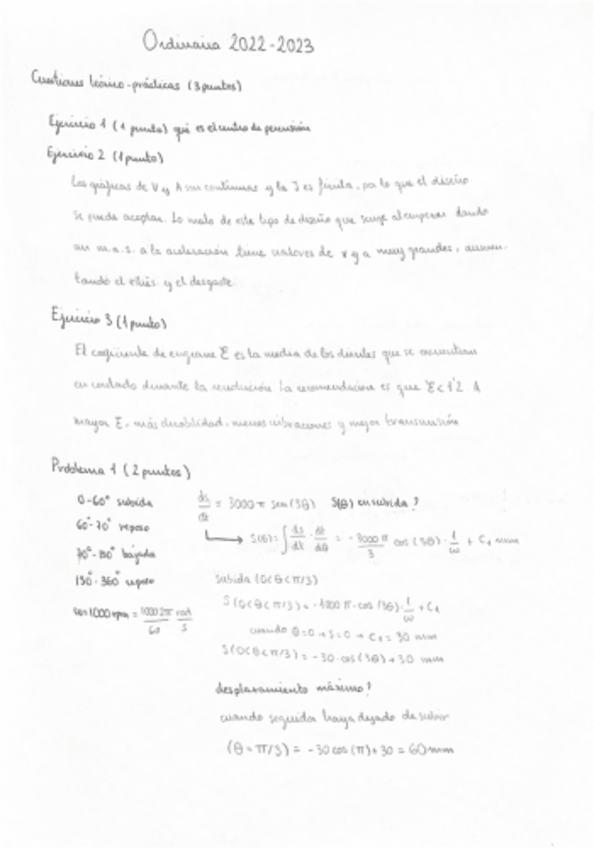 Ordinaria 2022-2023
Cuestiones teórico-prácticas (3 puntos)
Ejercicio 1 (1 punto) qué es el centro de percusión
Ejercicio 2 (1 punto)
Las gráficas de V y A son continuas y la J es finita, por lo que el diseño
se puede aceptar. Lo malo de este tipo de diseño que surge al empezar dando
un m.a.s. a la aceleración tiene valores de v y a muy grandes, aumen-
tando el estrés y el desgaste.
Ejercicio 3 (1 punto)
El coeficiente de engrane Ɛ es la media de los dientes que se encuentran
en contacto durante la conducción. La recomendación es que Ɛ < 1'2. A
mayor Ɛ, más durabilidad, menos vibraciones y mejor transmisión
Problema 1 (2 puntos)
0-60° subida ds/dt = 3000 π sen(3θ) S(θ) en subida?
60°-70° reposo
S(θ) = ∫ ds/dt · dt/dθ = - 3000 π/3 cos(3θ) · 1/ω + C₁ mm
70°-150° bajada
150°-360° reposo subida (0<θ<π/3)
ω=1000 rpm = 1000 2π/60 rad/s S(0<θ<π/3) = -1000 π · cos(3θ) · 1/ω + C₁
cuando θ=0 → S=0 → C₁ = 30 mm
S(0<θ<π/3) = -30 · cos(3θ) + 30 mm
desplazamiento máximo?
cuando seguidor haya dejado de subir
(θ = π/3) = -30 cos(π) + 30 = 60 mm